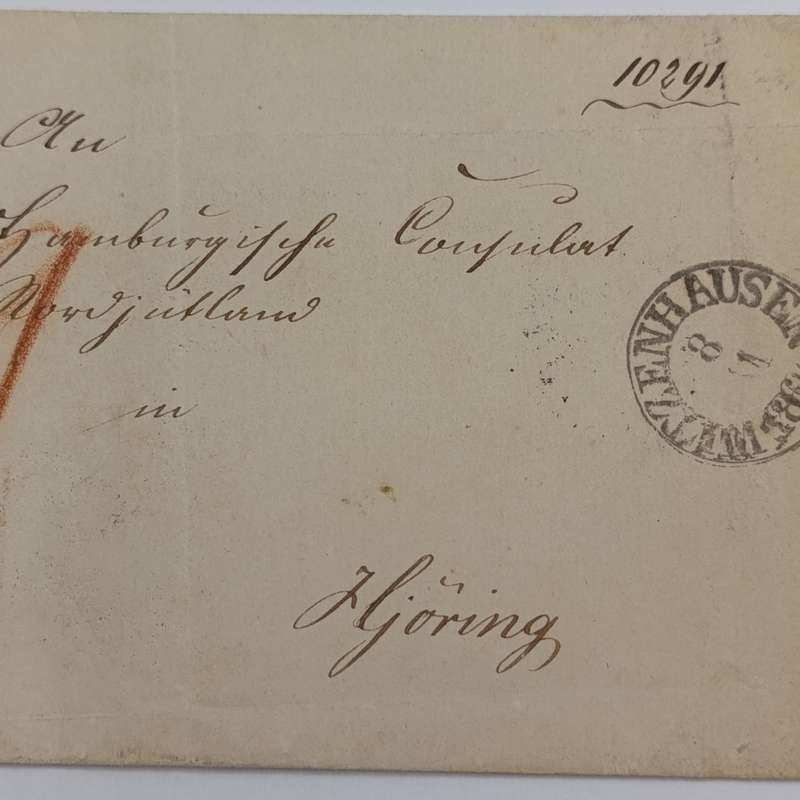 10291
An
Hamburgische Consulat
Nordjütland
in
Hjöring
8
1